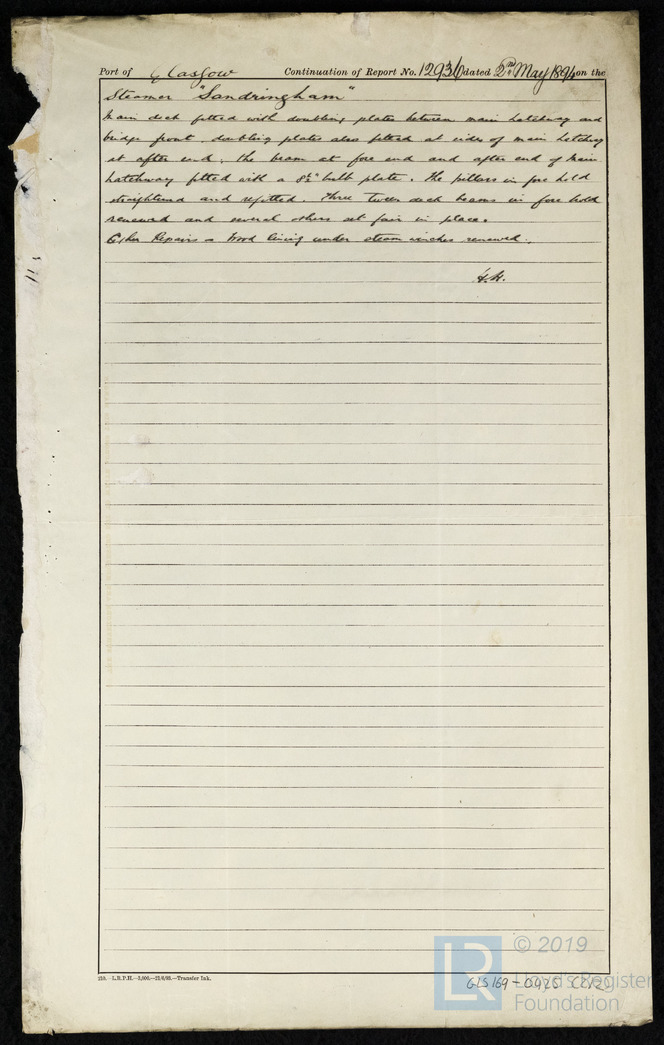 Port of Glasgow Continuation of Report No. 12936 dated 2nd May 1894 on the
Steamer "Sandringham"
Main deck fitted with doubling plates between main hatchway and
bridge front. doubling plates also fitted at sides of main hatchway
at after end. The beam at fore end and after end of Main
hatchway fitted with a 8½" bulb plate. The pillars in fore hold
straightened and refitted. Three tween deck beams in fore hold
renewed and several others set fair in place.
Other Repairs = Wood lining under steam winches renewed.
H.H.
210.—L.R.P.H.—2,000.— —Transfer Ink.
© 2019
LR
Lloyd's Register
Foundation
GLS169-0425